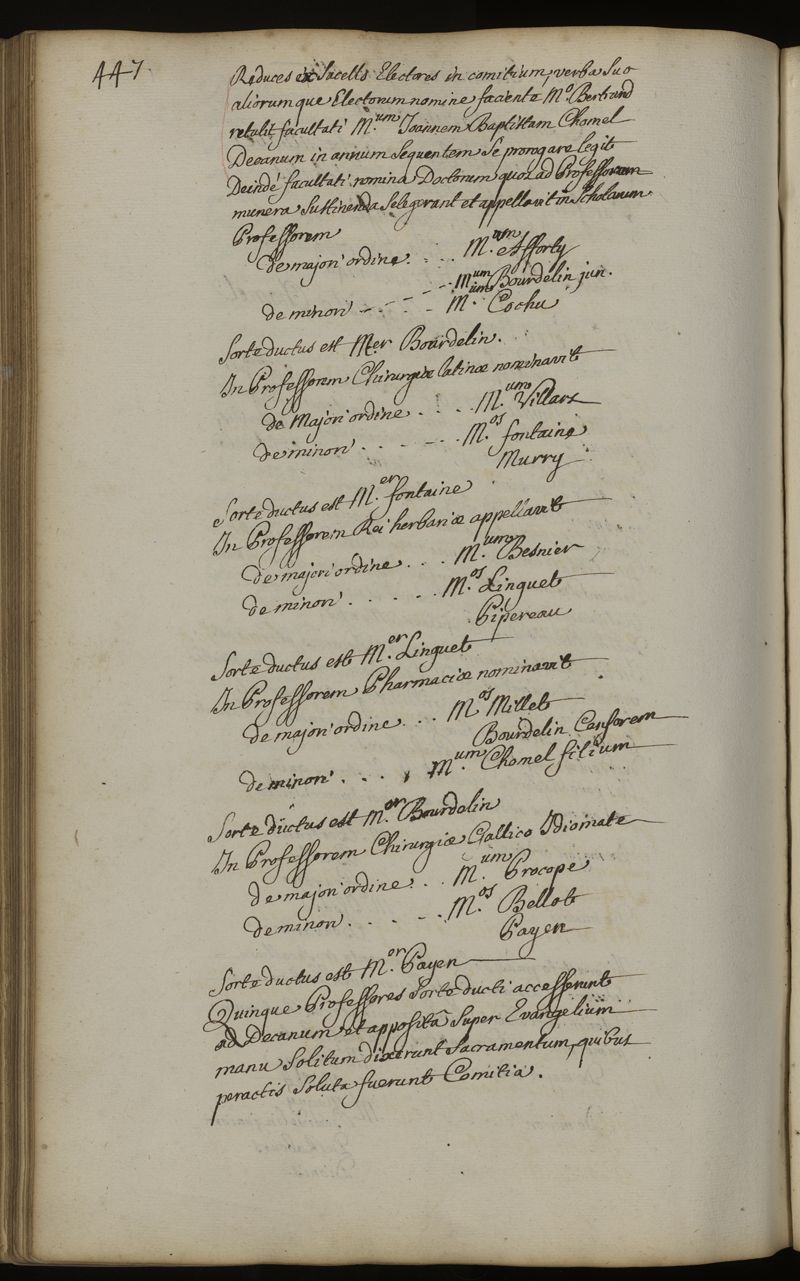 447.
Reduces ex Sacello Electores in comitium, verba Suo
aliorumque Electorum nomine faciente M.º Bertrand
retulit facultati M.um Joannem Baptistam Chomel
Decanum in annum Sequentem Se prorogare legit
Deindé facultati nomina Doctorum quos ad Professorum
munera Sustinenda Selegerant et appellavit in Scholarum
Professorem
de majori ordine . . . . M.um Afforty
M.um Bourdelin jun.
de minori - - - - - M.um Cochu
Sorte ductus est M.er Bourdelin.
In Professorem Chirurgiæ latinæ nominavit
de Majori ordine . . . . M.um Villars
de minori . . - - . . M.os fontaine
Murry
Sorte ductus est M.er fontaine
In Professorem Rei herbariæ appellavit
de majori ordine . . . M.um Besnier
de minori . . . . . . M.os Linguet
Pipereau
Sorte ductus est M.er Linguet
In Professorem Pharmaciæ nominavit
de majori ordine . . . M.os Millet
Bourdelin Censorem
de minori . . . . M.um Chomel filium
Sorte ductus est M.er Bourdelin
In Professorem Chirurgiæ Gallico Idiomate
de majori ordine . . . M.um Procope
de minori . . . - . M.os Bellot
Payen
Sorte ductus est M.er Payen
Quinque Professores Sorte ducti accesserunt
ad Decanum et appositâ Super Evangelium
manu Solitum dixerunt Sacramentum, quibus
peractis Soluta fuerunt Comitia.